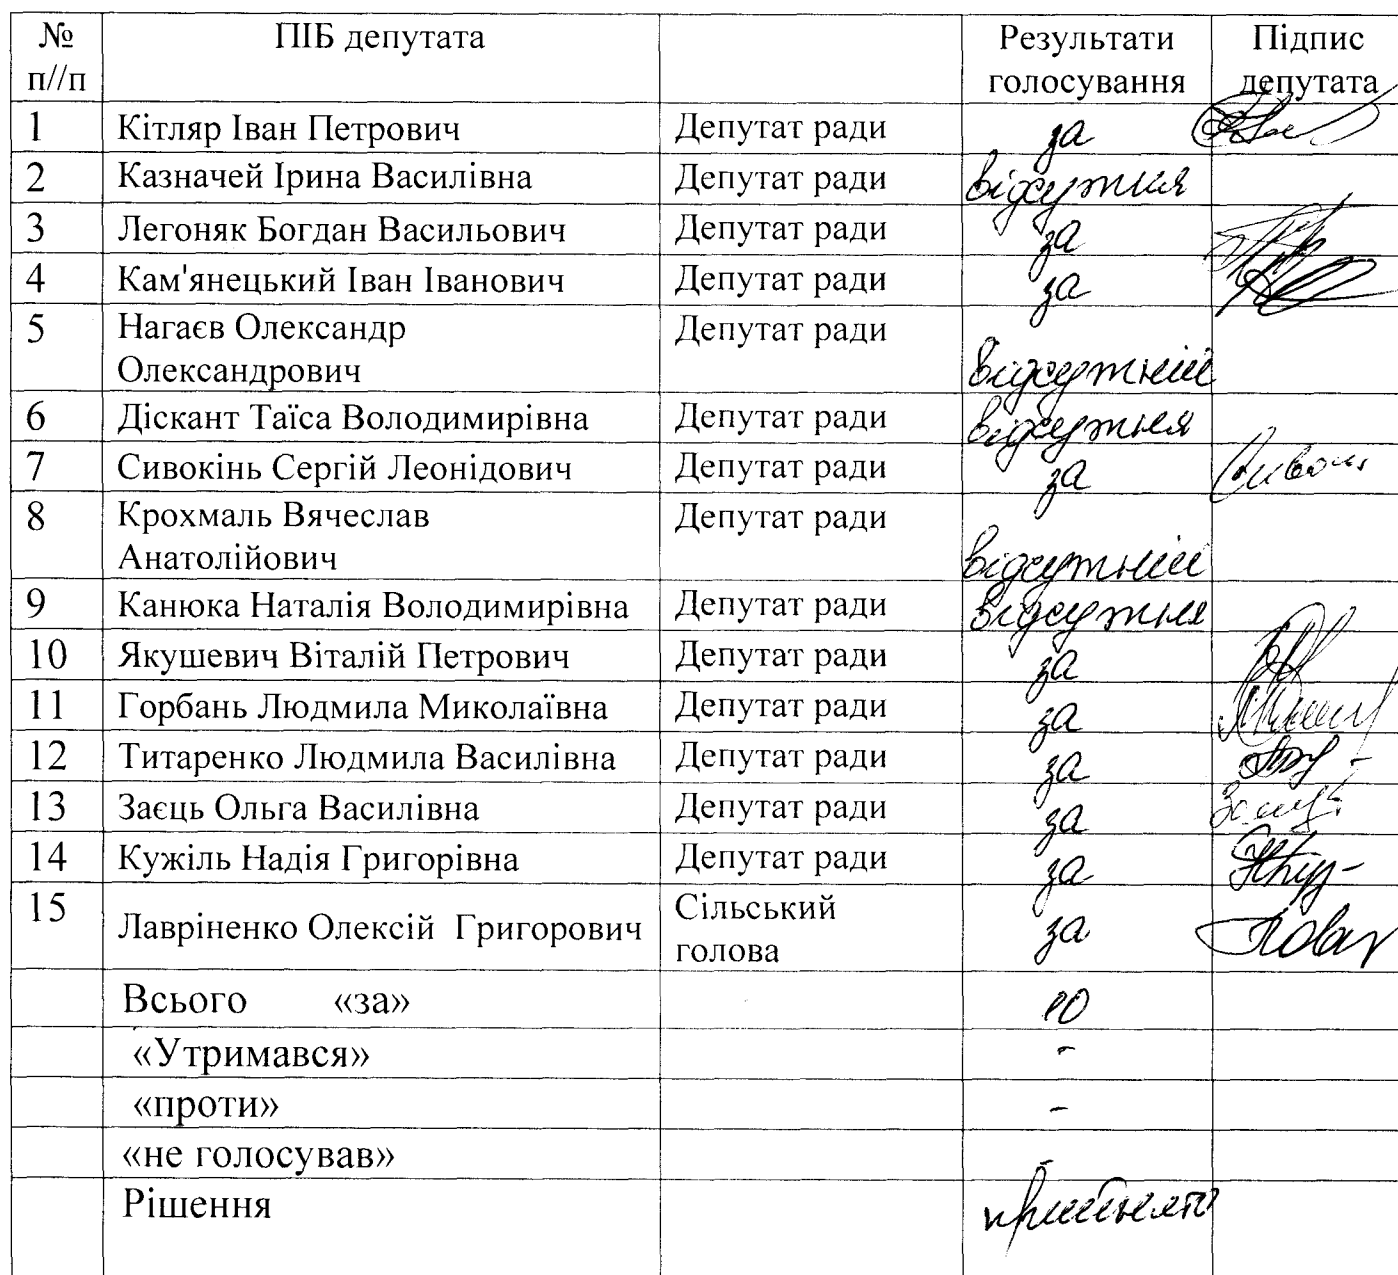 № ПІБ депутата Результати Підпис
п//п голосування депутата
1 Кітляр Іван Петрович Депутат ради за
2 Казначей Ірина Василівна Депутат ради відсутня
3 Легоняк Богдан Васильович Депутат ради за
4 Кам'янецький Іван Іванович Депутат ради за
5 Нагаєв Олександр Депутат ради
Олександрович відсутній
6 Діскант Таїса Володимирівна Депутат ради відсутня
7 Сивокінь Сергій Леонідович Депутат ради за
8 Крохмаль Вячеслав Депутат ради
Анатолійович відсутній
9 Канюка Наталія Володимирівна Депутат ради відсутня
10 Якушевич Віталій Петрович Депутат ради за
11 Горбань Людмила Миколаївна Депутат ради за
12 Титаренко Людмила Василівна Депутат ради за
13 Заєць Ольга Василівна Депутат ради за
14 Кужіль Надія Григорівна Депутат ради за
15 Лавріненко Олексій Григорович Сільський за
голова
Всього «за» 10
«Утримався» -
«проти» -
«не голосував» -
Рішення прийнято